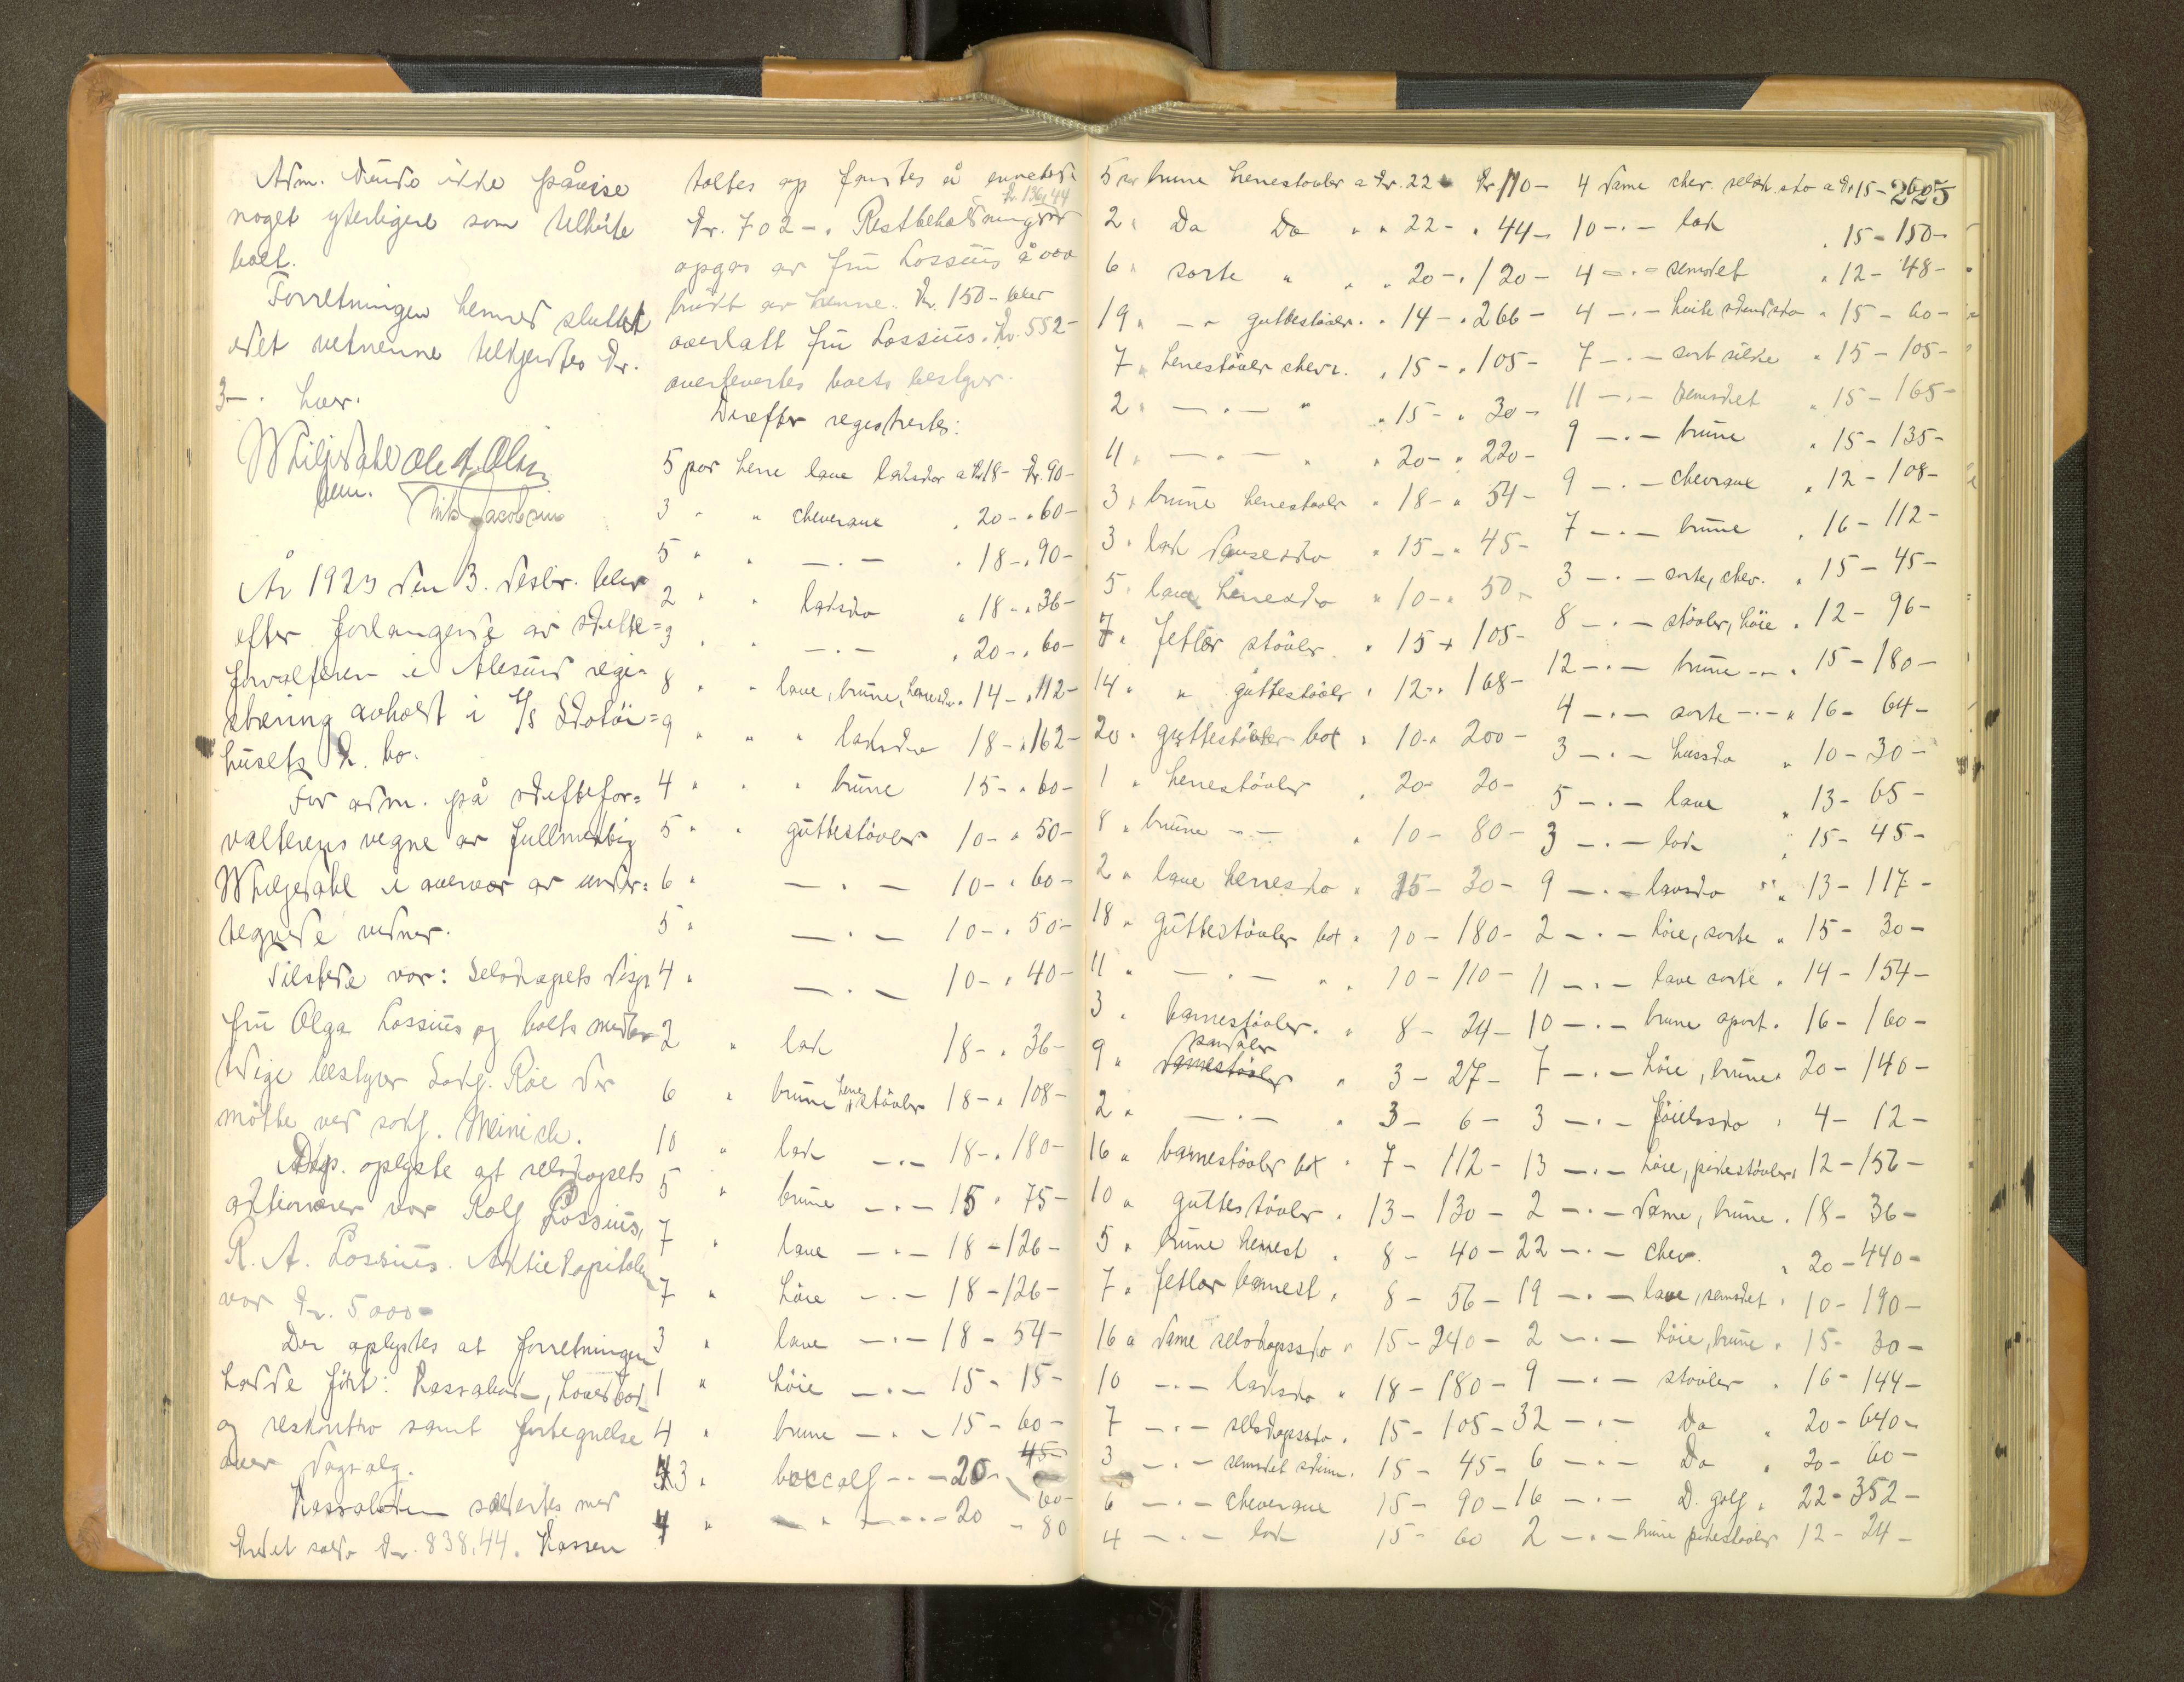 Adm. kunde ikke påvise
noget yterligere som tilhörte
boet.
Forretningen hermed sluttet
idet vitnerne tilkjendtes kr.
3 — . hver.
W Liljedahl Ole A. Olsen
Jacobsen
År 1923 den 3. desbr. blev
efter forlangende av skifte=
forvalteren i Ålesund regi=
strering avholdt i A/S Skotöi=
husets k. bo.
For adm. på skiftefor=
valterens vegne av fullmektig
W Liljedahl i overvær av under=
tegnede vidner.
Tilstede var: Selskapets disp.
fru Olga Lossius og boets midler
tidige bestyrer Sakf. Röe der
mötte ved sakf. Meinich.
Disp. oplyste at selskapets
aktionærer var Rolf Lossius,
R. A. Lossius. Aktiekapitalen
var kr. 5000-
Der oplystes at forretningen
hadde fört: Kassabok, hovedbok
og reskontro samt fortegnelse
over dagsalg.
Kassaboken saldertes med
kredit saldo kr. 838,44. Kassen
taltes op fantes å inneholde
kr. 702 - . Restbeholdningen kr 136,44
opgas av fru Lossius å være
brukt av henne. Kr. 150 - blev
overlatt fru Lossius. Kr. 552 -
overlevertes boets bestyrer.
Derefter registrertes:
5 par herre lave laksko a kr 18 - kr. 90 -
3 " " cheveraux " 20 - " 60 -
5 " " — . — " 18 - " 90 -
2 " " laksko " 18 - " 36 -
3 " " — . — " 20 - " 60 -
8 " " lave, brune, herresko " 14 - " 112 -
9 " " " laksko 18 - " 162 -
4 " " " brune 15 - " 60 -
5 " " guttestövler 10 - " 50 -
6 " — . — 10 - " 60 -
5 " — . — 10 - " 50 -
4 " — . — 10 - " 40 -
2 " lak 18 - " 36 -
6 " brune herrestövler 18 - " 108 -
10 " lak — . — 18 - " 180 -
5 " brune — . — 15 " 75 -
7 " lave — . — 18 - 126 -
7 " höie — . — 18 - 126 -
3 " lave — . — 18 - 54 -
1 " höie — . — 15 - 15 -
4 " brune — . — 15 - 60 -
3 " boxcalf — . — 20 - 45 - 60 -
4 " — " — . — 20 - 80
225
5 par brune herrestövler a kr. 22 kr 110 -
2 " Do Do " " 22 - " 44 -
6 " sorte " " " 20 - " 120 -
19 " — " guttestövler " " 14 - " 266 -
7 " herrestövler chevr. " 15 - " 105 -
2 " — . — " " 15 - " 30 -
11 " — . — " " 20 - " 220 -
3 " brune herrestövler " 18 - " 54 -
3 " lak dansesko " 15 - " 45 -
5 " lave herresko " 10 - " 50 -
7 " fetlær stövler " 15 - 105 -
14 " " guttestövler " 12 - " 168 -
20 " guttestövler box " 10 - " 200 -
1 " herrestövler " 20 - 20 -
8 " brune — . — " 10 - 80 -
2 " lave herresko " 15 - 30 -
18 " guttestövler box " 10 - 180 -
11 " — . — " " 10 - 110 -
3 " barnestövler " " 8 - 24 -
9 " damestövler sandaler " 3 - 27 -
2 " — . — " 3 - 6 -
16 " barnestövler box " 7 - 112 -
10 " guttestövler " 13 - 130 -
5 " brune herrest " 8 - 40 -
7 " fetlær barnest " 8 - 56 -
16 " dame selskapssko " 15 - 240 -
10 — . — laksko " 18 - 180 -
7 — . — selskapssko " 15 - 105 -
3 — . — semsket skinn " 15 - 45 -
6 — . — cheveraux 15 - 90 -
4 — . — lak 15 - 60
4 dame chev. selsk. sko a kr 15 - 60 -
10 — . — lak " 15 - 150 -
4 — . — semsket " 12 - 48 -
4 — . — hvite skindsko " 15 - 60 -
7 — . — sort silke " 15 - 105 -
11 — . — semsket " 15 - 165 -
9 — . — brune " 15 - 135 -
9 — . — chevraux " 12 - 108 -
7 — . — brune " 16 - 112 -
3 — . — sorte, chev. " 15 - 45 -
8 — . — stövler, höie " 12 - 96 -
12 — . — brune — . — " 15 - 180 -
4 — . — sorte — . — " 16 - 64 -
3 — . — hussko " 10 - 30 -
5 — . — lave " 13 - 65 -
3 — . — lak " 15 - 45 -
9 — . — lavsko " 13 - 117 -
2 — . — höie, sorte " 15 - 30 -
11 — . — lave sorte " 14 - 154 -
10 — . — brune sport " 16 - 160 -
7 — . — höie, brune " 20 - 140 -
3 — . — föielssko " 4 - 12 -
13 — . — höie, pikestövler " 12 - 156 -
2 — . — dame, brune " 18 - 36 -
22 — . — chev. " 20 - 440 -
19 — . — lave, semsket " 10 - 190 -
2 — . — höie, brune " 15 - 30 -
9 — . — stövler " 16 - 144 -
32 — . — Do " 20 - 640 -
6 — . — Do " 20 - 60 -
16 — . — D. golf " 22 - 352 -
2 — . — brune pikestövler 12 - 24 -